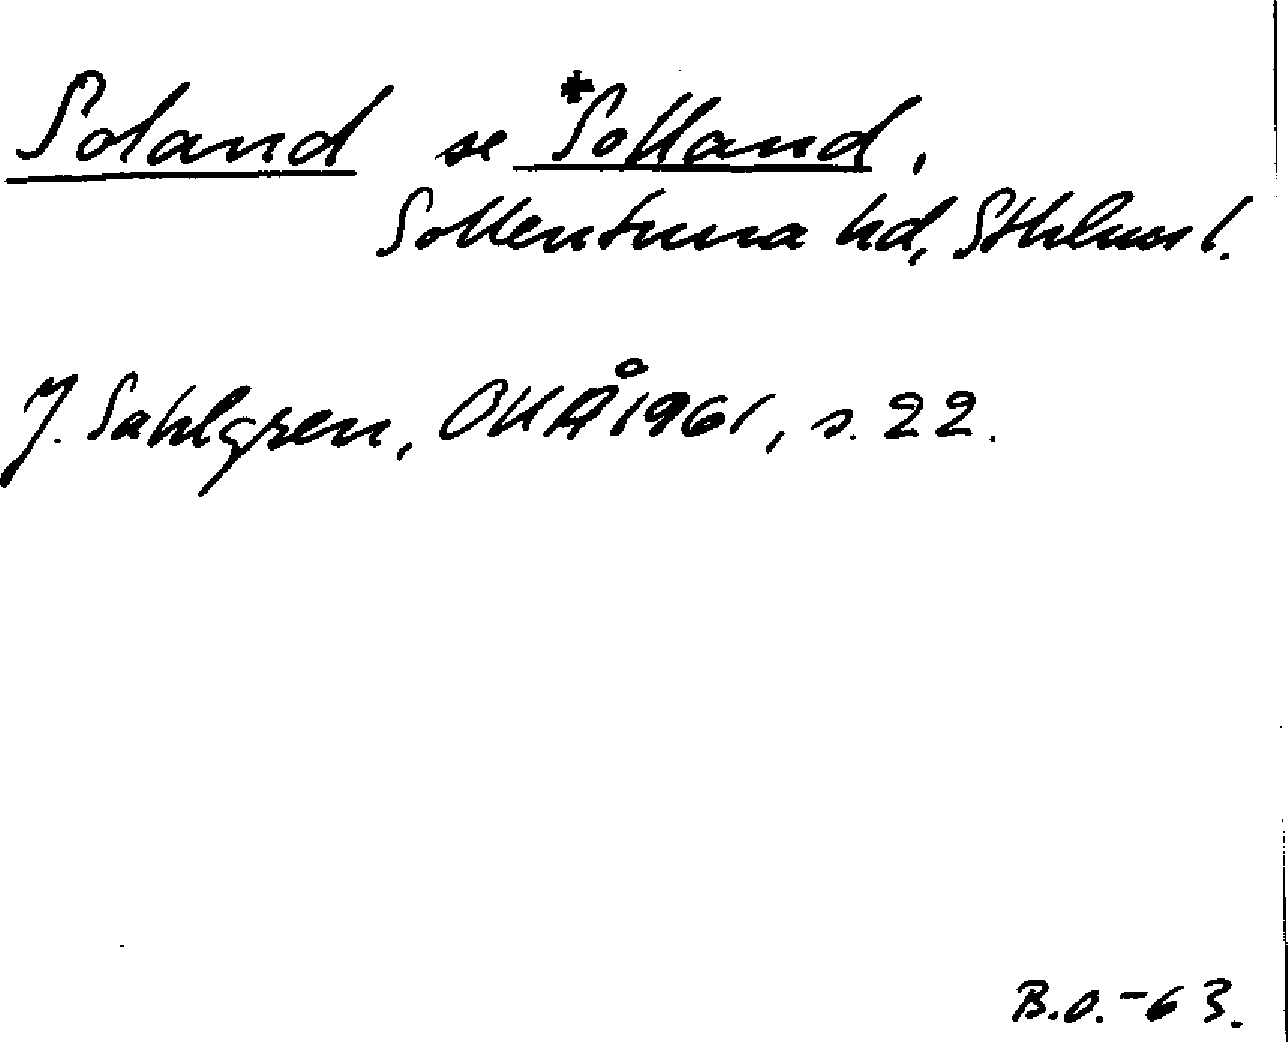 Soland se *Solland,
Sollentuna hd, Sthlms l.
J. Sahlgren, OUÅ 1961, s. 22.
B.O.-63.